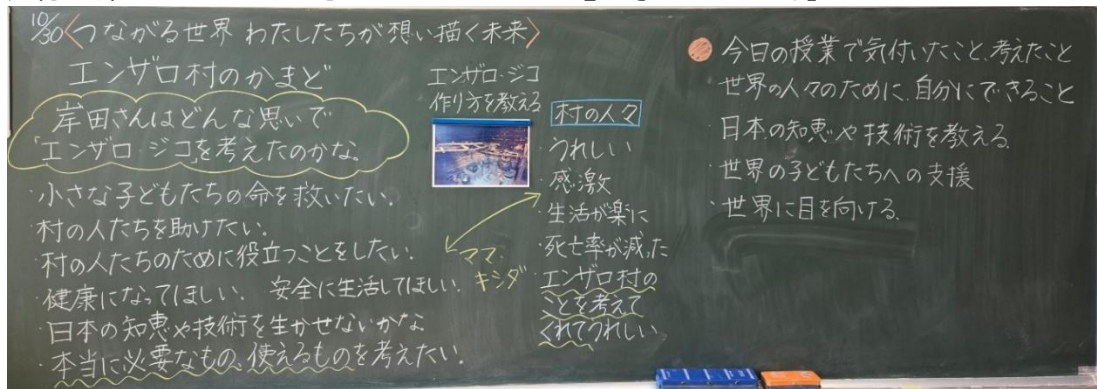 10/30〈つながる世界 わたしたちが想い描く未来〉
エンザロ村のかまど
岸田さんはどんな思いで
「エンザロ・ジコ」を考えたのかな。
・小さな子どもたちの命を救いたい。
・村の人たちを助けたい。
・村の人たちのために役立つことをしたい。
・健康になってほしい。 安全に生活してほしい。
・日本の知恵や技術を生かせないかな
・本当に必要なもの、使えるものを考えたい。
エンザロ・ジコ
作り方を教える
ママ・
キシダ
村の人々
・うれしい
・感激
・生活が楽に
・死亡率が減った
・エンザロ村の
ことを考えて
くれてうれしい
今日の授業で気付いたこと、考えたこと
世界の人々のために、自分にできること
・日本の知恵や技術を教える。
・世界の子どもたちへの支援
・世界に目を向ける。